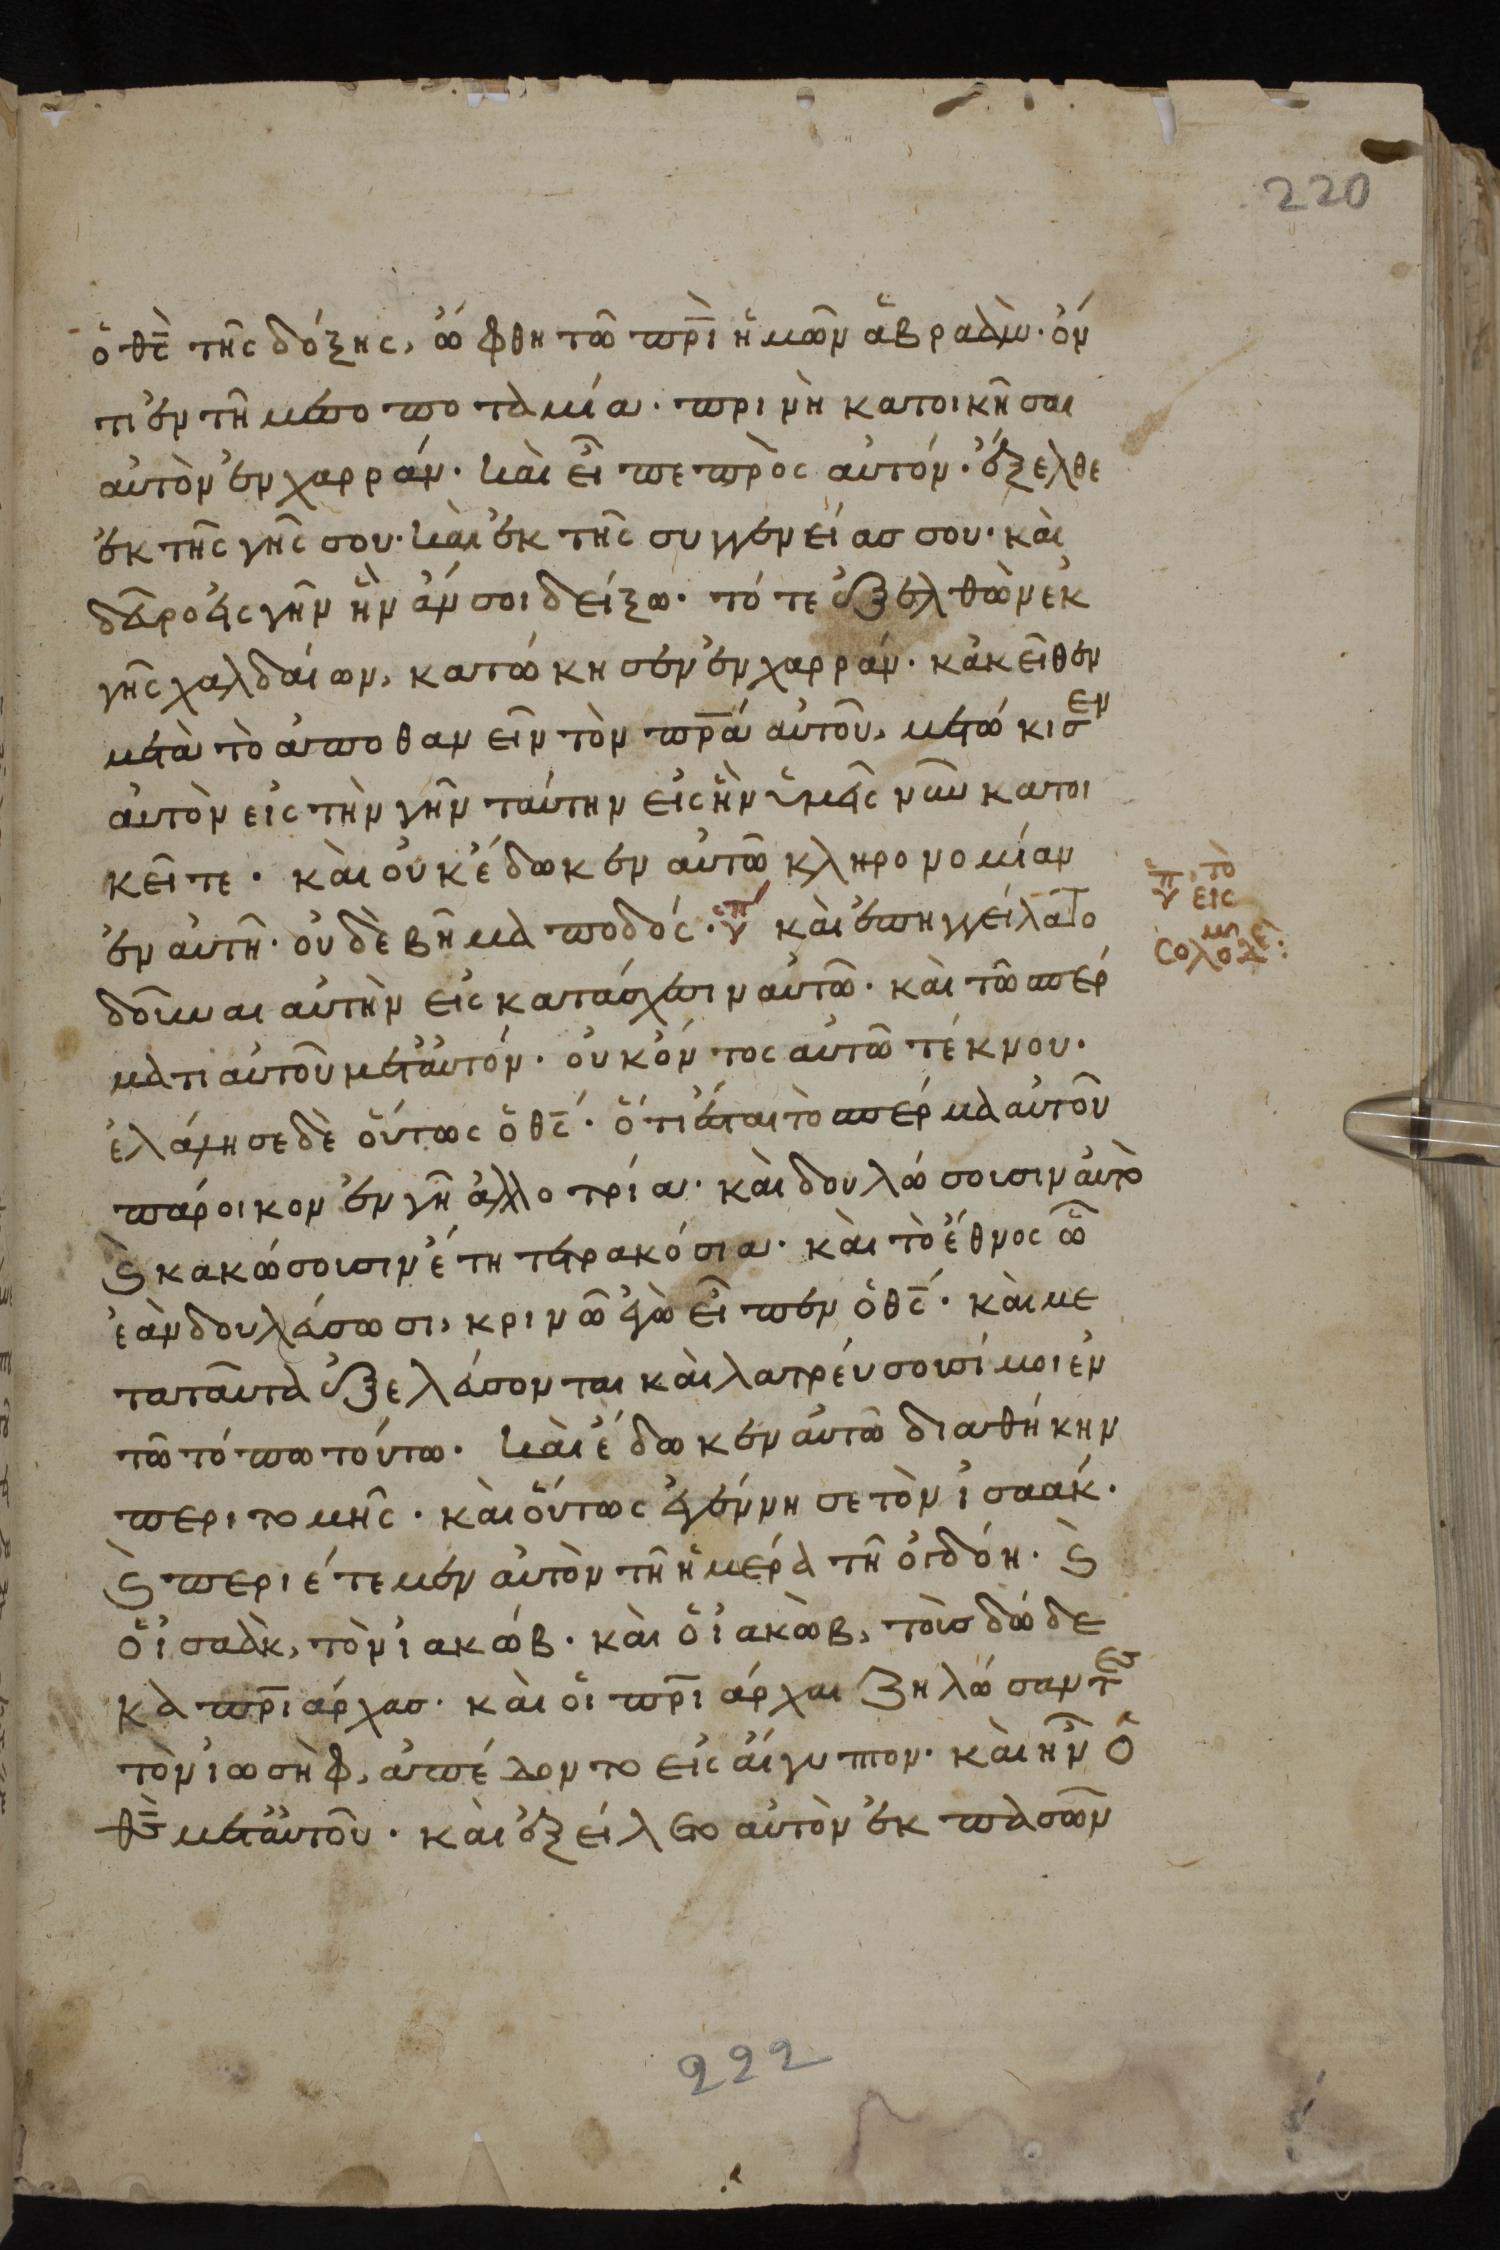 220
ὁ θς̅ τῆς δόξης, ὤφθη τῶ πρ̅ι ἡμῶν ἀβραὰμ· ὄν
τι ἐν τῆ μεσοποταμία· πρινὴ κατοικῆσαι
αὐτὸν ἐν χαρράν· καὶ εἶπε πρὸς αὐτόν· ἔξελθε
ἐκ τῆς γῆς σου· καὶ ἐκ τῆς συγγενείασ σου· καὶ
δεῦρο εἰς γῆν ἣν ἄν σοι δείξω· τότε ἐξελθὼν ἐκ
γῆς χαλδαίων, κατώκησεν ἐν χαρράν· κἀκεῖθεν
μετὰ τὸ ἀποθανεῖν τὸν πρ̅α αὐτοῦ, μετώκισεν
αὐτὸν εἰς τὴν γῆν ταύτην εἰς ἣν ὑμεῖς νῦν κατοι
κεῖτε· καὶ οὐκ ἔδωκεν αὐτῶ κληρονομίαν
ἐν αὐτῆ· οὐδὲ βῆμα ποδός· καὶ ἐπηγγείλατο
δοῦναι αὐτὴν εἰς κατάσχεσιν αὐτῶ· καὶ τῶ σπέρ
ματι αὐτοῦ μετ' αὐτόν· οὐκ ὄντος αὐτῶ τέκνου·
ἐλάλησε δὲ οὕτως ὁ θς̅· ὅτι ἔσται τὸ σπέρμα αὐτοῦ
πάροικον ἐν γῆ ἀλλοτρία· καὶ δουλώσουσιν αὐτὸ
ϗ κακώσουσιν ἔτη τετρακόσια· καὶ τὸ ἔθνος ὧ
ἐὰν δουλεύσωσι, κρινῶ ἐγὼ εἶπεν ὁ θς̅· καὶ με
τα ταῦτα ἐξελεύσονται καὶ λατρεύσουσί μοι ἐν
τῶ τόπω τούτω· καὶ ἔδωκεν αὐτῶ διαθήκην
περιτομῆς· καὶ οὕτως ἐγέννησε τὸν ἰσαάκ·
ϗ περιέτεμεν αὐτὸν τῆ ἡμέρα τῆ ὀγδόη· ϗ
ὁ ἰσαὰκ, τὸν ἰακώβ· καὶ ὁ ἰακὼβ, τοὺσ δώδε
κα πρ̅ιάρχασ· καὶ οἱ πρ̅ιάρχαι ζηλώσαντες
τὸν ἰωσὴφ, ἀπέδοντο εἰς αἴγυπτον· καὶ ἦν ὁ
θς̅ μετ' αὐτοῦ· καὶ ἐξείλετο αὐτὸν ἐκ πασῶν
222